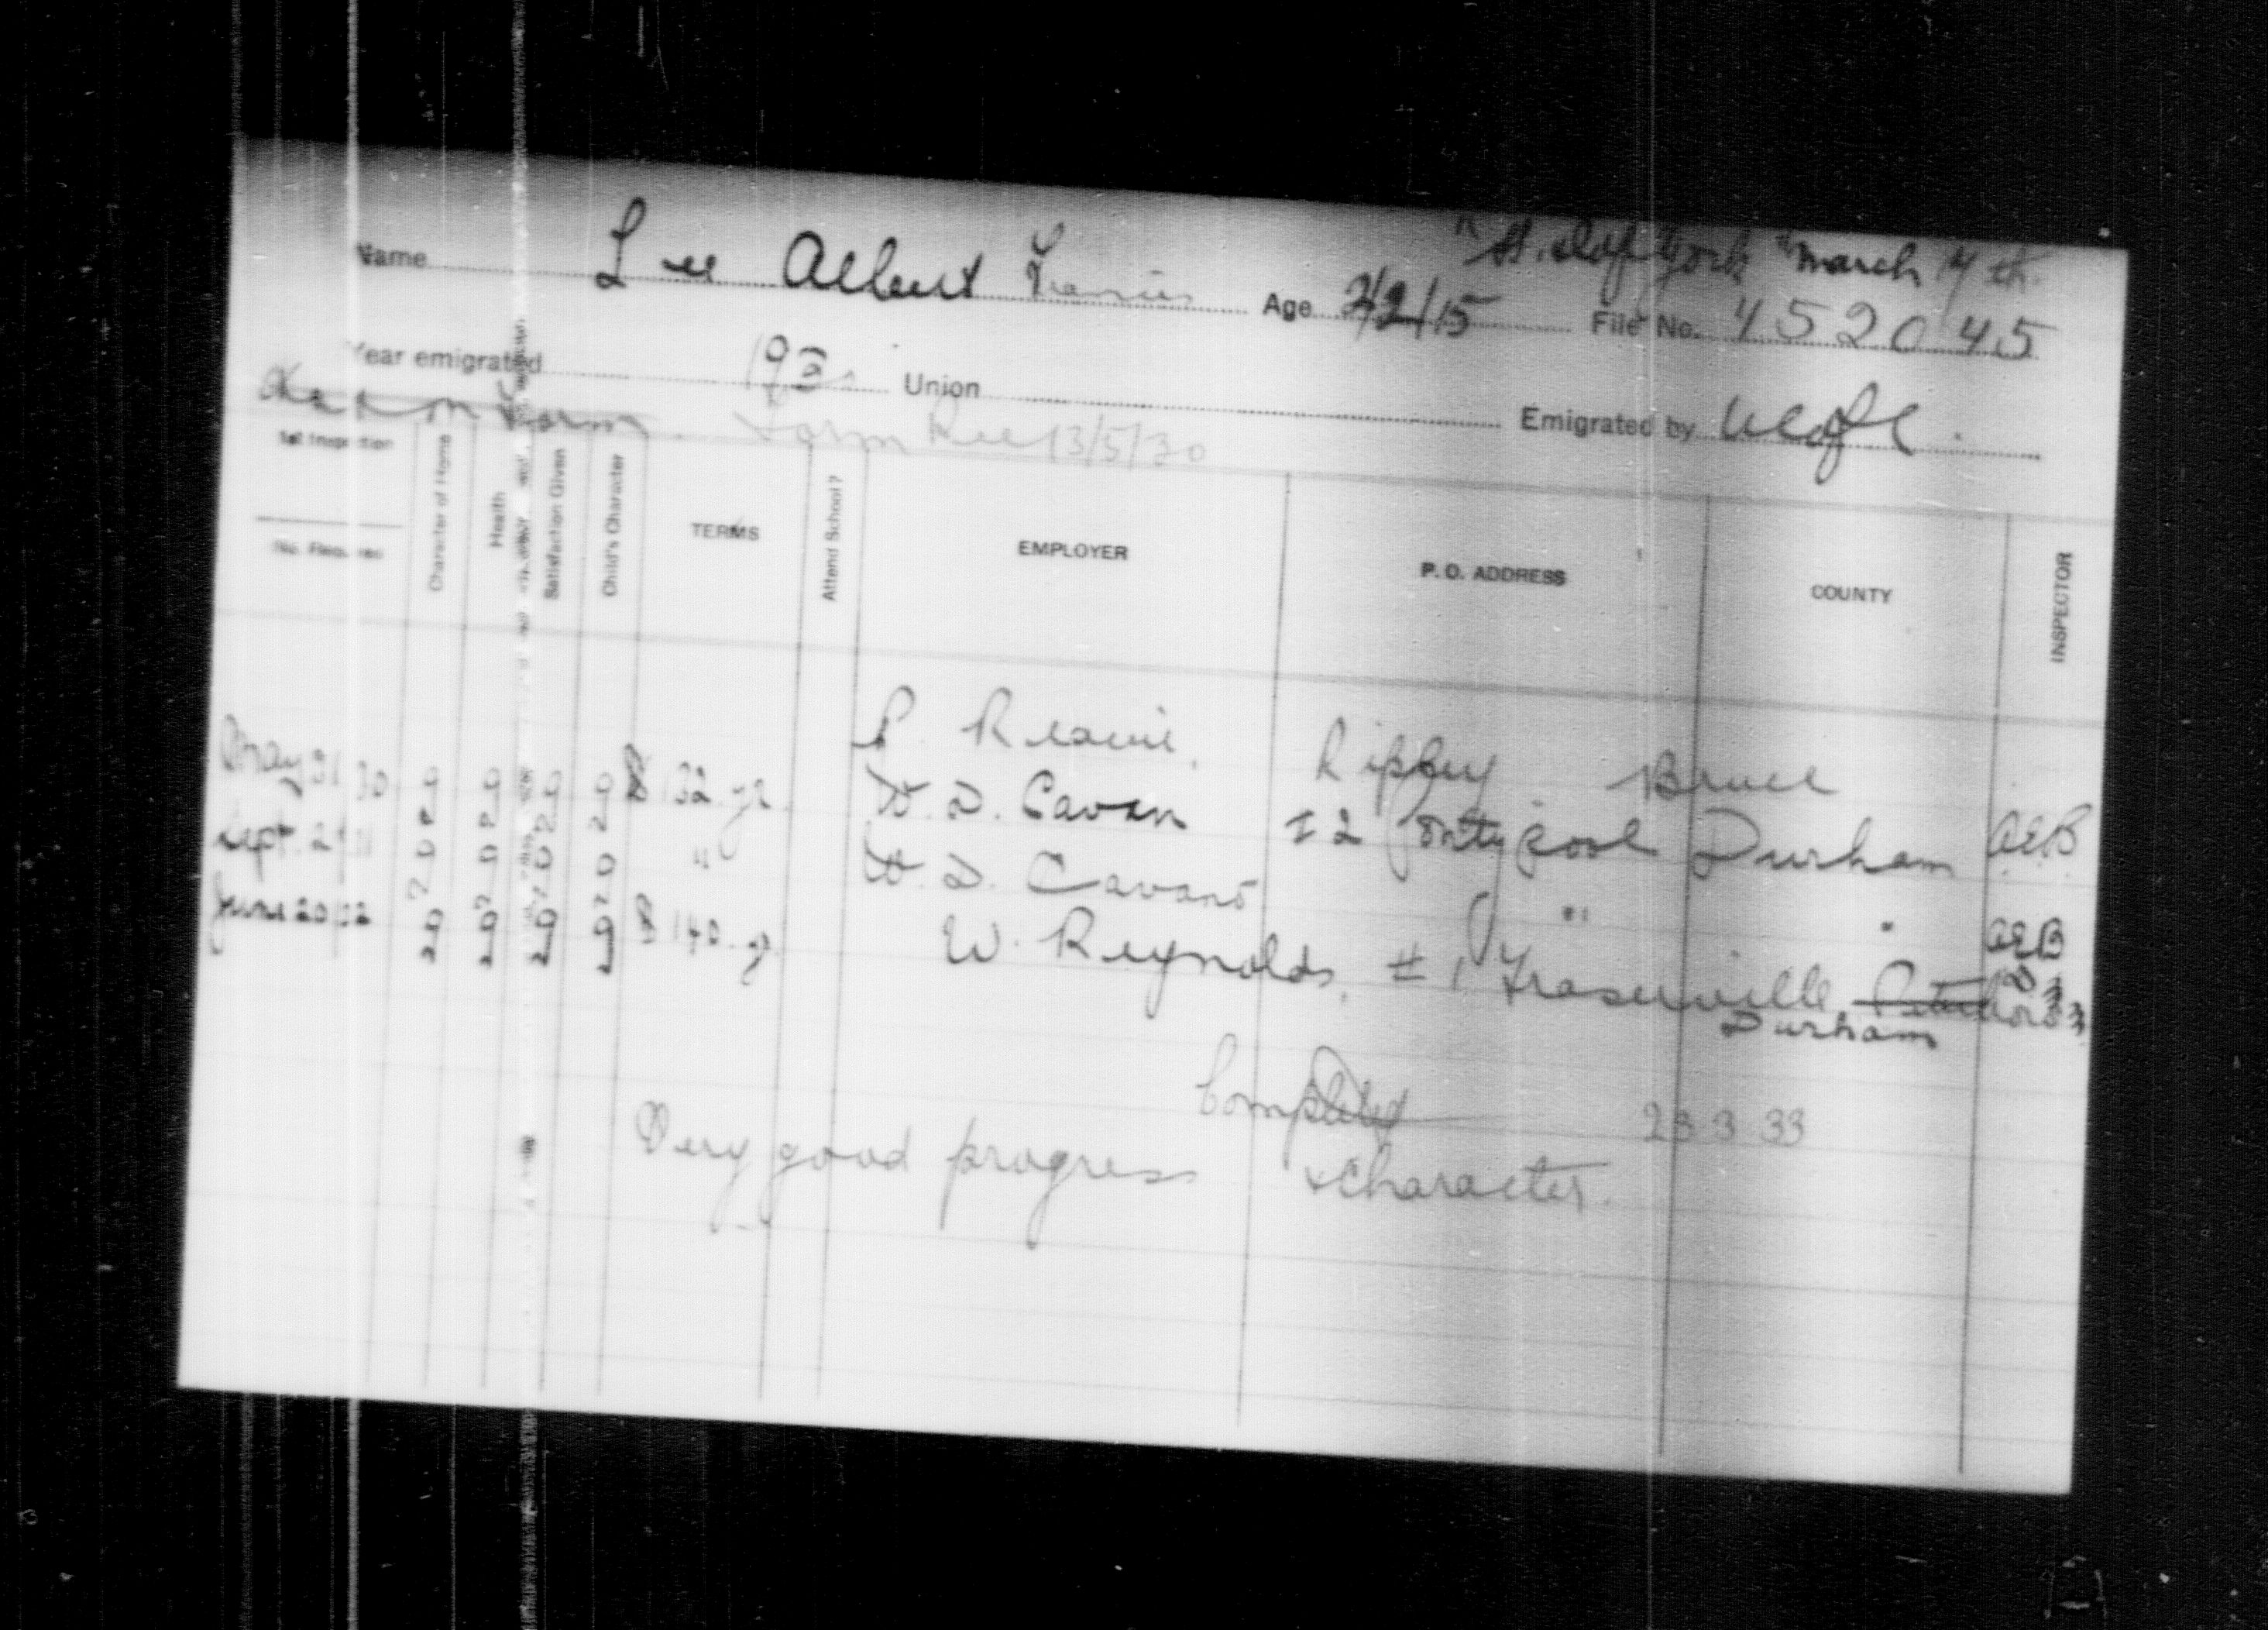 March 14 th.
Name Lee Albert Francis Age 2/2/15 File No. 452045
Year emigrated 1930 Union Emigrated by
Form Rec 13/5/30
1st Inspection
No. Required
Character of Home
Health
Satisfaction Given
Child's Character
TERMS
Attend School?
EMPLOYER
P. O. ADDRESS
COUNTY
INSPECTOR
Ripley Bruce
May 31 30 $132 yr W. D. Cavan #2 Pontypool Durham AEB
Sept. 2 31 " W. D. Cavano " " AEB
June 20 32 $140 yr W. Reynolds, #1, Fraserville Peterboro
Durham
Completed 23 3 33
Very good progress & Character.